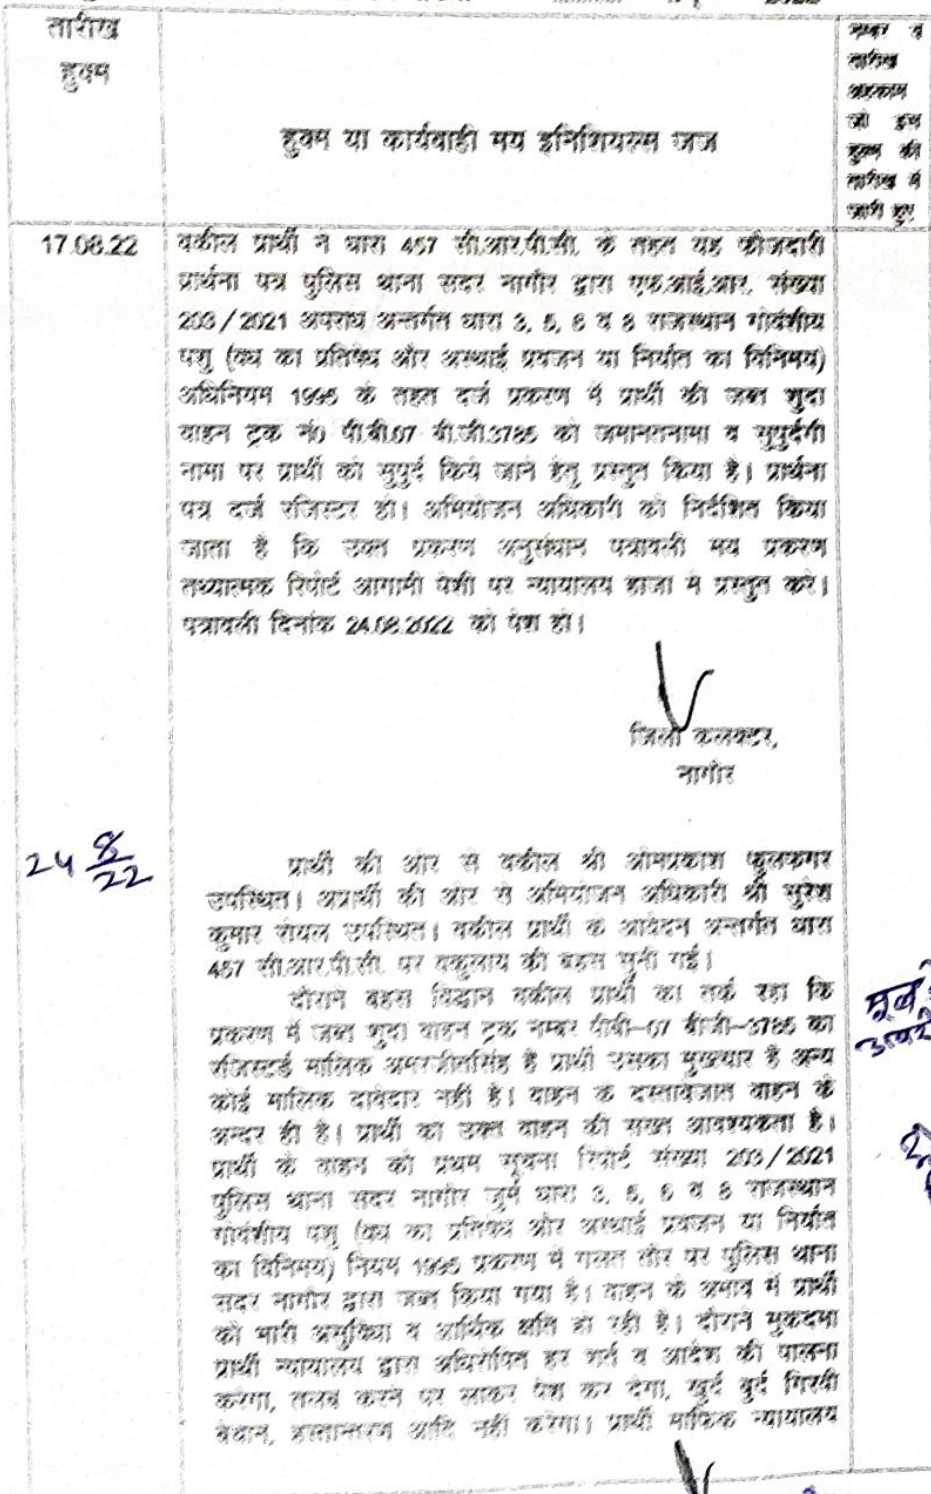 तारीख
हुक्म
हुक्म या कार्यवाही मय इनिशियल्स जज
नम्बर व
तारिख
अहकाम
जो इस
हुक्म की
तारिख में
जारी हुए
17.08.22
वकील प्रार्थी ने धारा 457 सी.आर.पी.सी. के तहत यह फौजदारी
प्रार्थना पत्र पुलिस थाना सदर नागौर द्वारा एफ.आई.आर. संख्या
203/2021 अपराध अन्तर्गत धारा 3, 5, 6 व 8 राजस्थान गोवंशीय
पशु (वध का प्रतिषेध और अस्थाई प्रवजन या निर्यात का विनिमय)
अधिनियम 1995 के तहत दर्ज प्रकरण में प्रार्थी की जब्त शुदा
वाहन ट्रक नं0 पी.बी.07 बी.जी.3785 को जमानतनामा व सुपुर्दगी
नामा पर प्रार्थी को सुपुर्द किये जाने हेतु प्रस्तुत किया है। प्रार्थना
पत्र दर्ज रजिस्टर हो। अभियोजन अधिकारी को निर्देशित किया
जाता है कि उक्त प्रकरण अनुसंधान पत्रावली मय प्रकरण
तथ्यात्मक रिपोर्ट आगामी पेशी पर न्यायालय हाजा मे प्रस्तुत करे।
पत्रावली दिनांक 24.08.2022 को पेश हो।
जिला कलक्टर,
नागौर
24 8/22
प्रार्थी की ओर से वकील श्री ओमप्रकाश फुलफगर
उपस्थित। अप्रार्थी की ओर से अभियोजन अधिकारी श्री सुरेश
कुमार रोयल उपस्थित। वकील प्रार्थी के आवेदन अन्तर्गत धारा
457 सी.आर.पी.सी. पर वकुलाय की बहस सुनी गई।
दौराने बहस विद्वान वकील प्रार्थी का तर्क रहा कि
प्रकरण में जब्त शुदा वाहन ट्रक नम्बर पीबी-07 बीजी-3785 का
रजिस्टर्ड मालिक अमरजीतसिंह है प्रार्थी उसका मुख्यार है अन्य
कोई मालिक दावेदार नहीं है। वाहन के दस्तावेजात वाहन के
अन्दर ही है। प्रार्थी का उक्त वाहन की सख्त आवश्यकता है।
प्रार्थी के वाहन को प्रथम सूचना रिपोर्ट संख्या 203/2021
पुलिस थाना सदर नागौर जुर्म धारा 3, 5, 6 व 8 राजस्थान
गोवंशीय पशु (वध का प्रतिषेध और अस्थाई प्रवजन या निर्यात
का विनिमय) नियम 1995 प्रकरण में गलत तौर पर पुलिस थाना
सदर नागौर द्वारा जब्त किया गया है। वाहन के अभाव में प्रार्थी
को भारी असुविधा व आर्थिक क्षति हो रही है। दौराने मुकदमा
प्रार्थी न्यायालय द्वारा अधिरोपित हर शर्त व आदेश की पालना
करेगा, तलब करने पर लाकर पेश कर देगा, खुर्द बुर्द गिरवी
बेचान, हस्तान्तरण आदि नहीं करेगा। प्रार्थी माफिक न्यायालय